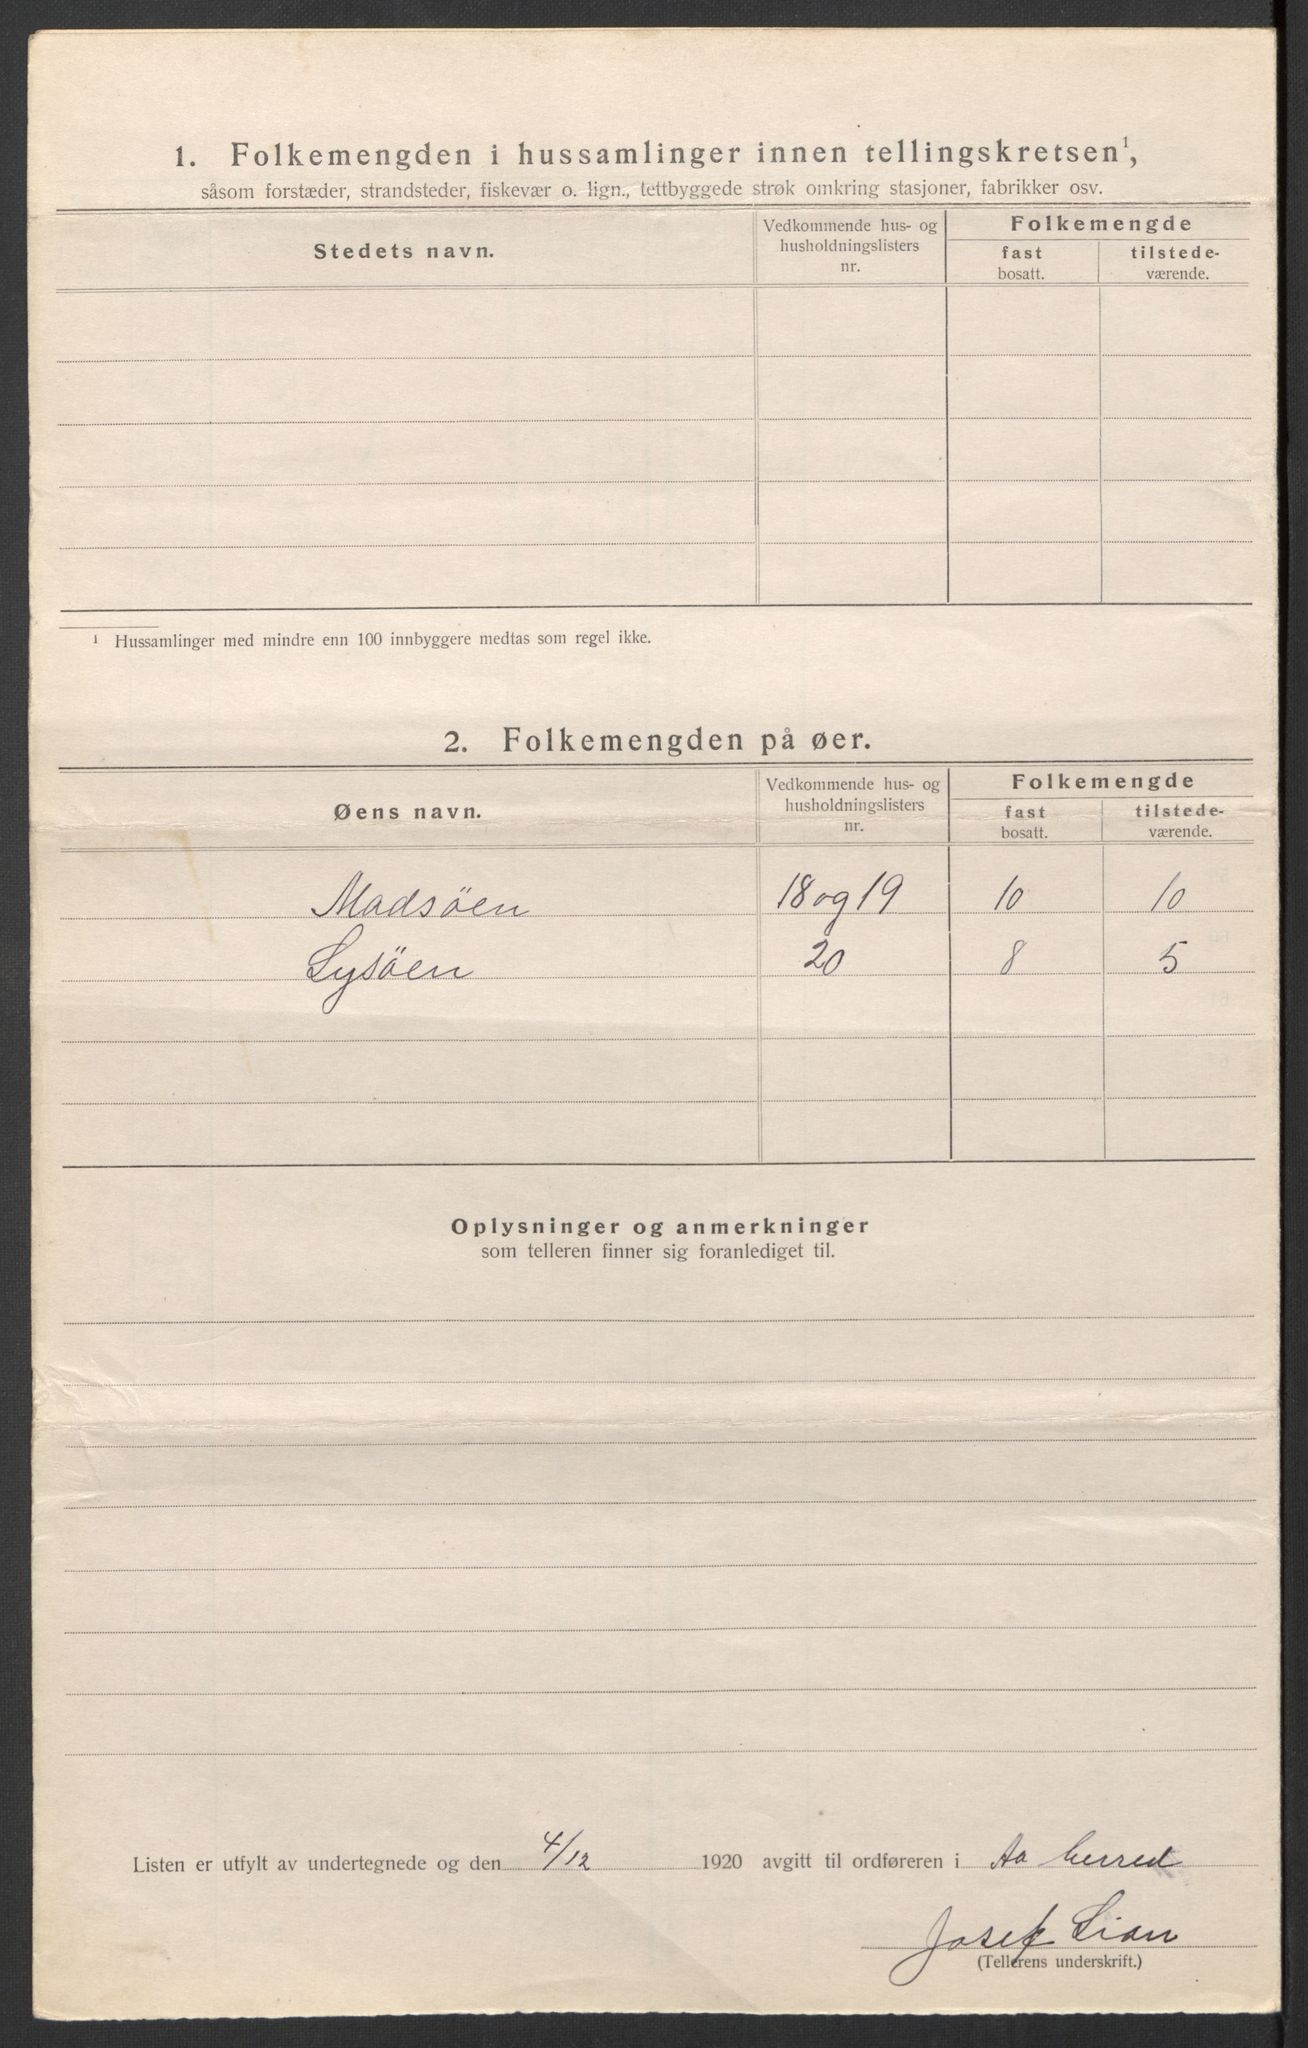 1. Folkemengden i hussamlinger innen tellingskretsen¹,
såsom forstæder, strandsteder, fiskevær o. lign., tettbyggede strøk omkring stasjoner, fabrikker osv.
Stedets navn.
Vedkommende hus- og
husholdningslisters
nr.
Folkemengde
fast
bosatt.
tilstede-
værende.
¹ Hussamlinger med mindre enn 100 innbyggere medtas som regel ikke.
2. Folkemengden på øer.
Øens navn.
Vedkommende hus- og
husholdningslisters
nr.
Folkemengde
fast
bosatt.
tilstede-
værende.
Madsöen 18 og 19 10 10
Lysöen 20 8 5
Oplysninger og anmerkninger
som telleren finner sig foranlediget til.
Listen er utfylt av undertegnede og den 4/12 1920 avgitt til ordføreren i Aa herred
Josef Lian
(Tellerens underskrift.)